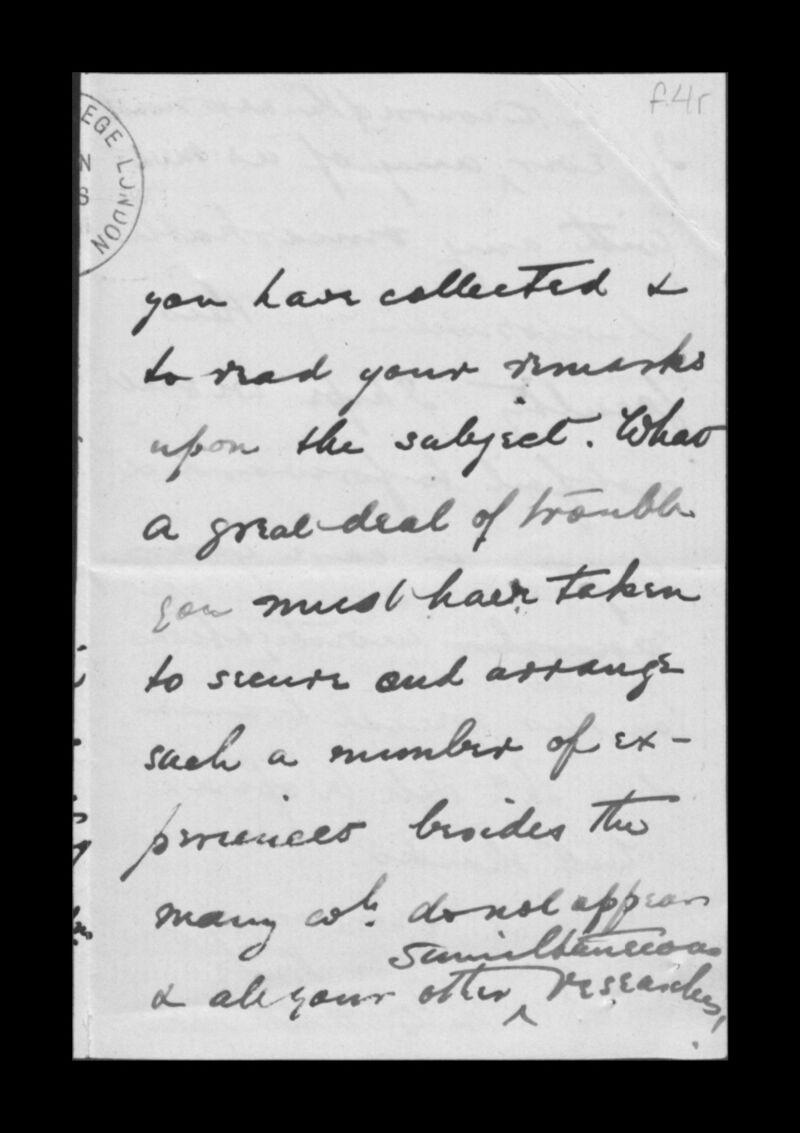 f.4r
EGE LONDON
N
S
you have collected &
to read your remarks
upon the subject. What
a great deal of trouble
you must have taken
to secure and arrange
such a number of ex-
periences besides the
many wh. do not appear
simultaneous
& all your other ^ researches,